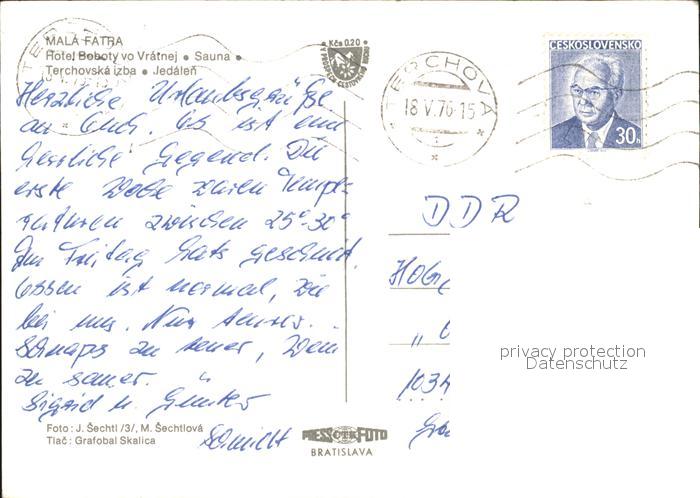 MALÁ FATRA
Hotel Boboty vo Vrátnej • Sauna •
Terchovská izba • Jedáleň
Kčs 0.20
TERCHOVÁ
18.V.76-15
ČESKOSLOVENSKO
30h
Herzliche Urlaubsgrüße
an Euch. Es ist eine
herrliche Gegend. Die
erste Woche waren Tempe-
raturen zwischen 25°-30°
Am Freitag hats geschneit.
Essen ist normal, wie
bei uns. Nur
Schnaps zu teuer, Wein
zu sauer.
Sigrid u. Günter
Schmidt
DDR
privacy protection
Datenschutz
Foto: J. Šechtl /3/, M. Šechtlová
Tlač: Grafobal Skalica
PRESSFOTO
BRATISLAVA